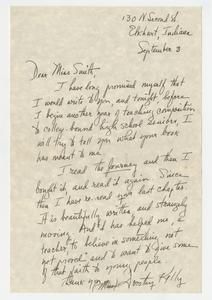 130 N Second St
Elkhart, Indiana
September 3
Dear Miss Smith,
I have long promised myself that
I would write to you, and tonight, before
I begin another year of teaching composition
to college-bound high school seniors, I
will try to tell you what your book
has meant to me.
I read The Journey and then I
bought it, and read it again. Since
then I have re-read your last chapter.
It is beautifully written, and strangely
moving. And it has helped me, a
teacher to believe in something not
yet proved and to want to give some
of that faith to young people.
Thank you